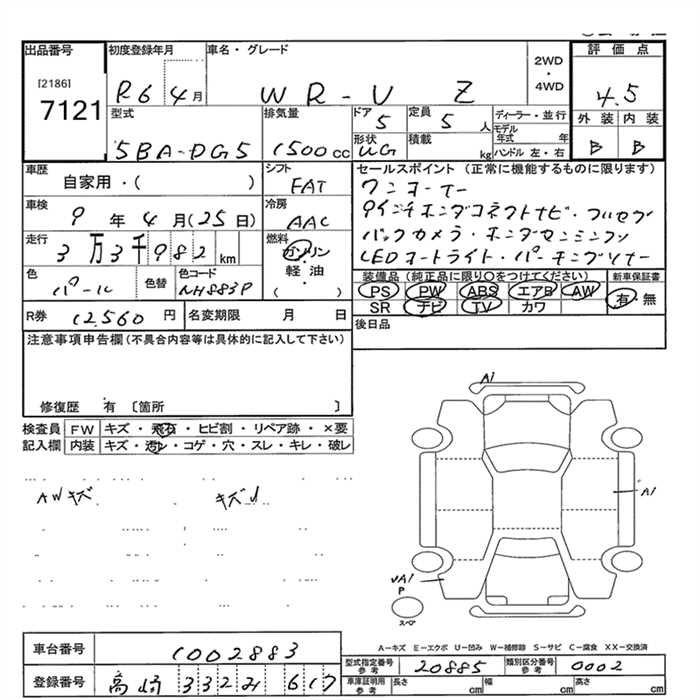 出品番号 初度登録年月 車名・グレード 2WD ・ 4WD 評価点
[2186]
7121 R6 4月 WR-V Z 4.5
型式 排気量 ドア 5 定員 5 人 ディーラー・並行 外装 内装
5BA-DG5 1500cc 形状 UG 積載 kg モデル年式 年 ハンドル 左・右 B B
車歴 シフト セールスポイント (正常に機能するものに限ります)
自家用・( ) FAT ワンオーナー
車検 冷房 9インチホンダコネクトナビ・フルセグ
9年4月(25日) AAC バックカメラ・ホンダセンシング
走行 燃料 LEDオートライト・パーキングソナー
3万3千982km ガソリン・軽油・( )
色 色替 色コード 装備品(純正品に限り○をつけてください) 新車保証書
パール NH883P PS PW ABS エアB AW 有・無
SR ナビ TV カワ
R券 12,560円 名変期限 月 日 後日品
注意事項申告欄(不具合内容等は具体的に記入して下さい)
修復歴 有 〔箇所 〕
検査員 FW キズ・飛石・ヒビ割・リペア跡・×要
記入欄 内装 キズ・汚レ・コゲ・穴・スレ・キレ・破レ
AWキズ キズ
A1
A1
A1
P
スペア
A-キズ E-エクボ U-凹み W-補修跡 S-サビ C-腐食 XX-交換済
車台番号 1002883
型式指定番号 参考 20885 類別区分番号 参考 0002
登録番号 高崎 332 617
車庫証明用 参考 長さ cm 幅 cm 高さ cm